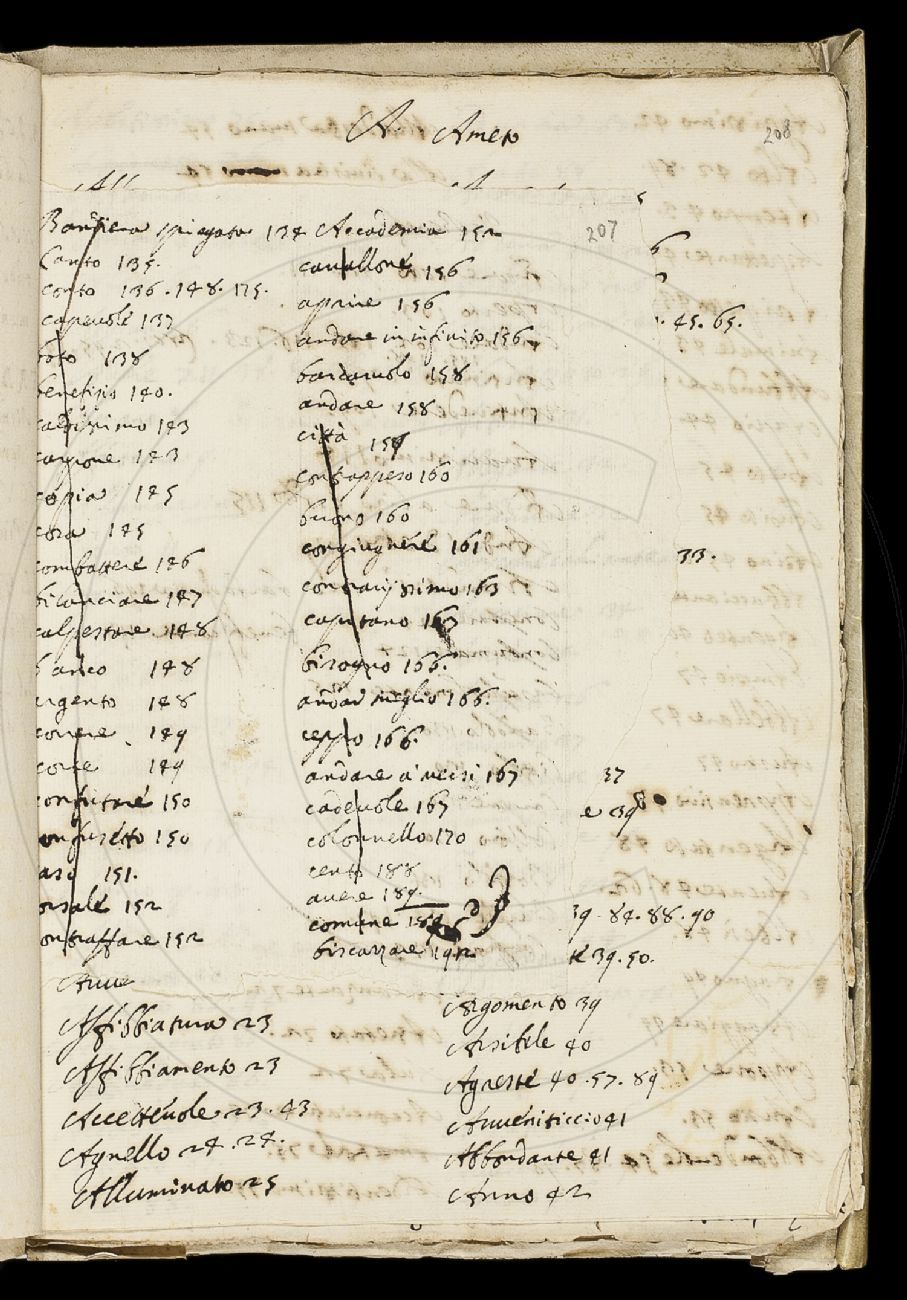 A Ameto
208
207
Bandiera spiegata 134
Canto 135.
conto 136.148.175.
capeuole 137
boto 138
benefizio 140.
caldissimo 143
cagione 143
copia 145
cosa 145
combattere 146
bilanciare 147
calpestare 148
banco 148
argento 148
correre 149
corre 149
confutare 150
confusetto 150
151.
corsale 152
contraffare 152
Accademia 152
cauallone 156
aprire 156
andare in infinito 156
barcaruolo 158
andare 158
città 159
contrappeso 160
buono 160
congiugnere 161
contrarissimo 163
capitano 163
bisogno 166.
andar meglio 166.
ceppo 166.
andare a uersi 167
cadeuole 167
colonnello 170
cento 188
auere 189.
comune 189
biscazzare 192
6
. 45. 65.
33.
37
e 39
39. 84. 88. 90
39. 50.
Auue
Affibbiatura 23
Affibbiamento 23
Acceteuole 23. 43
Agnello 24. 24.
Alluminato 25
Argomento 39
Arsibile 40
Agreste 40. 57. 89
Auueniticcio 41
Abbondante 41
Anno 42